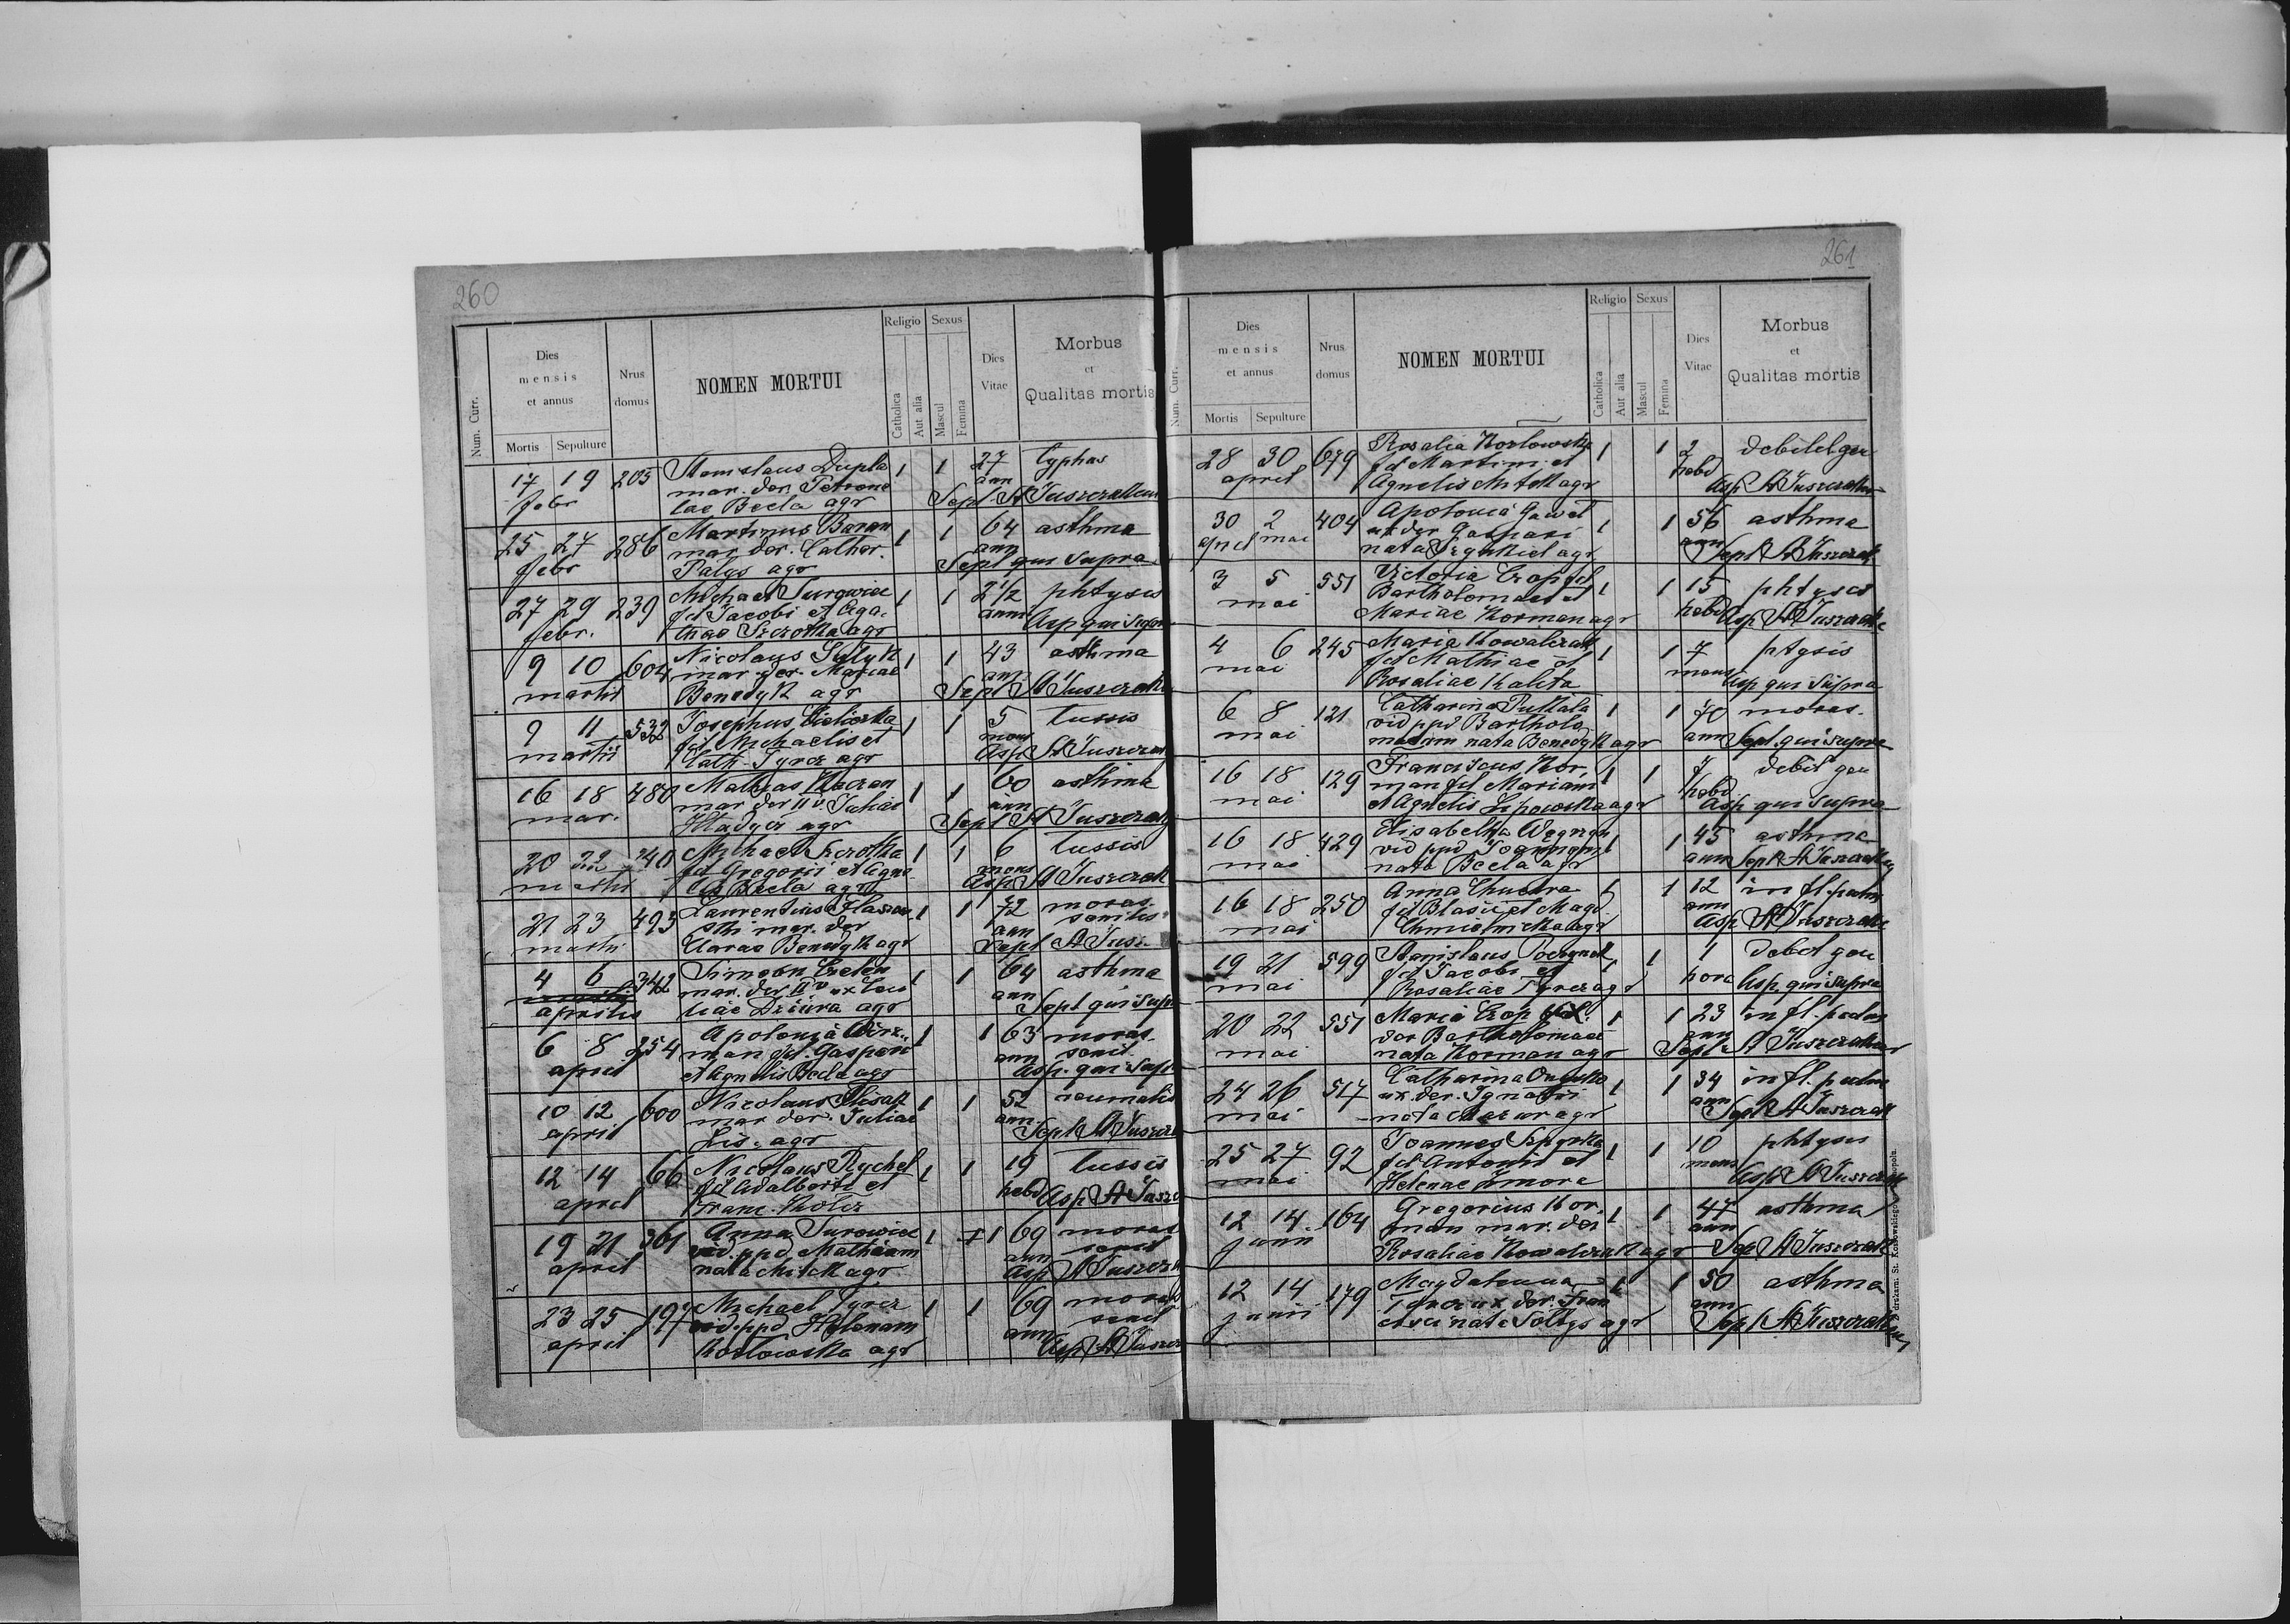 260
Num. Curr.
Dies mensis et annus
Mortis Sepulture
Nrus domus
NOMEN MORTUI
Religio Sexus
Catholica Aut alia Mascul Femina
Dies Vitae
Morbus et Qualitas mortis
17 19 205 Stanislaus Dupla 1 1 27 typhus
febr mar. der. Petrone ann
lae Becla agr Sept St Juszczak
25 27 286 Martinus Baran 1 1 64 asthma
febr mar. der. Cathar. ann
Palys agr Sept qui supra
27 29 239 Michael Surowiec 1 1 2 1/2 phtysis
febr. fil Jacobi et Aga. anni
thae Szczotka agr Asp qui supra
9 10 604 Nicolaus 1 1 43 asthma
martii mar. der. Mariae ann
Benedyk agr Sept St Juszczak
9 11 532 Josephus 1 1 5 tussis
martii fil Michaelis et mens
Cath. Tyrcz agr Asp St Juszczak
16 18 480 Mathias 1 1 60 asthma
mar. mar der IIo Juliae ann
agr Sept St Juszczak
20 22 240 Michael Szczotka 1 1 6 tussis
martii fil Gregorii et Agne mens
lis Becla agr Asp St Juszczak
21 23 493 Laurentius 1 1 72 moras.
martii ski mar. der ann senilis
Claras Benedyk agr Sept St Jusz
4 6 342 Simeon 1 1 64 asthma
aprilis mar. der IIo ux ann
liae Dziura agr Sept qui supr
6 8 254 Apolonia 1 1 63 moras.
april man fil. Gaspari ann senil.
et Agnelis Becla agr Asp. qui supr
10 12 600 Nicolaus 1 1 52 reumatis
april mar der. Juliae ann.
Lis. agr Sept St Juszcz
12 14 66 Nicolaus Rychel 1 1 19 tussis
april fil Adalberti et hebd
Franc. Asp St Juszcz
19 21 361 Anna Surowiec 1 1 69 moras
april vid. ppd Mathiam ann senil
nata Mitek agr Asp St Juszcz
23 25 197 Michael Tyrcz 1 1 69 moras
april vid. ppd Helenam ann senil
Kozlowska agr Asp St Juszcz
261
Num. Curr.
Dies mensis et annus
Mortis Sepulture
Nrus domus
NOMEN MORTUI
Religio Sexus
Catholica Aut alia Mascul Femina
Dies Vitae
Morbus et Qualitas mortis
28 30 679 Rosalia Kozlowska 1 1 2 debilit gen
april fil Martini et hebd
Agnelis Mitek agr Asp St Juszczak
30 2 404 Apolonia Gawel 1 1 56 asthma
april mai ux der Gaspari ann
nata agr. Sept St Juszczak
3 5 551 Victoria Czop fil 1 1 15 phtysis
mai Bartholomaei et hebd
Mariae Korman agr Asp St Juszczak
4 6 245 Maria Kowalczak 1 1 7 ptysis
mai fil Mathiae et mens
Rosaliae Kaleta Asp qui supra
6 8 121 Catharina Pukala 1 1 70 moras.
mai vid ppd Bartholo ann
maeum nata Benedyk agr Sept qui supra
16 18 129 Franciscus Kor. 1 1 debil gen
mai man fil Mariani hebd
et Agnelis Lipowska agr Asp qui supra
16 18 429 Elisabetha 1 1 45 asthma
mai vid ppd Joannem ann
nata Becla agr Sept St Juszczak
16 18 250 Anna Chudra 1 1 12 infl. pulm
mai fil Blasii et Magd. ann
agr Asp St Juszczak
19 21 599 Stanislaus 1 1 1 debil gen
mai fil Jacobi et hora
Rosaliae Tyrcz agr Asp. qui supra
20 22 551 Maria Czop 1 1 23 infl. pulm
mai der Bartholomaei ann
nata Korman agr Sept St Juszczak
24 26 517 Catharina 1 1 34 infl. pulm
mai ux. der. Ignatii ann
nata Mazur agr Sept St Juszczak
25 27 92 Joannes Szpyrka 1 1 10 phtysis
mai fil Antonii et mens
Helenae Zmora Asp St Juszczak
12 14 164 Gregorius Kor. 1 1 47 asthma
junii man mar. der ann
Rosaliae Kowalczak agr Sept St Juszczak
12 14 179 Magdalenna 1 1 50 asthma
junii Tyrcz ux. der. Fran ann
cisci nata Soltys agr Sept St Juszczak